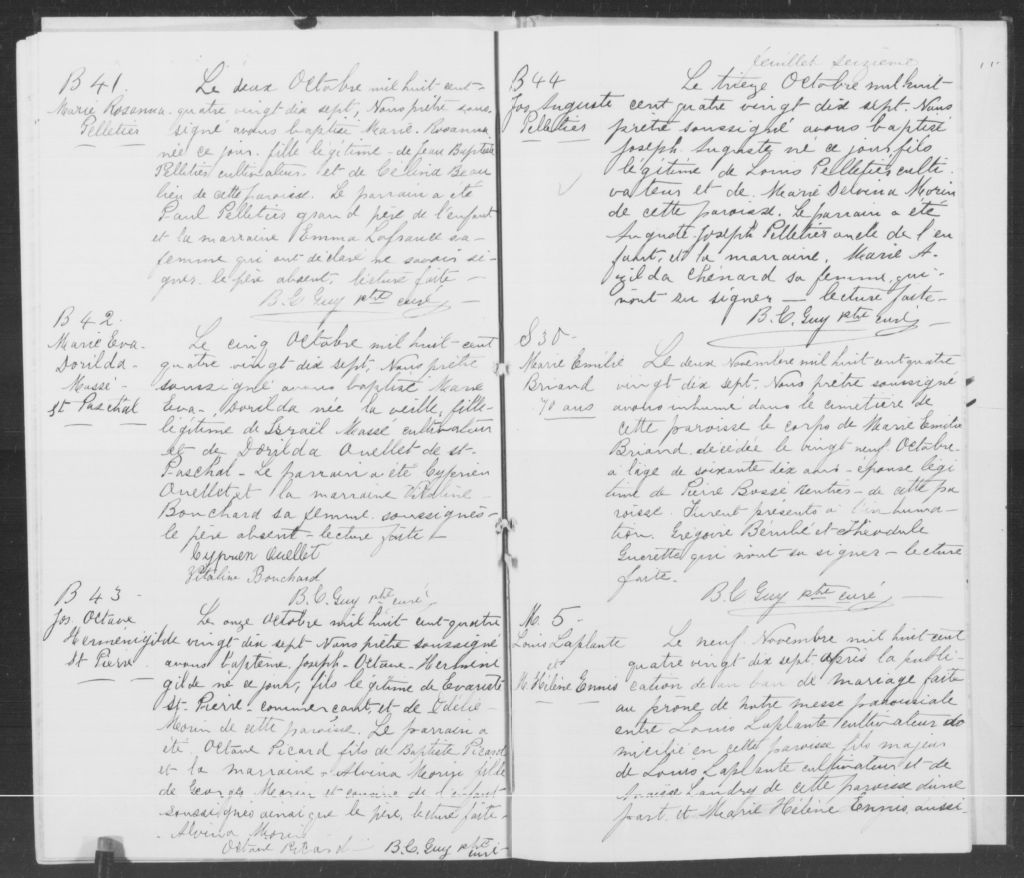 B 41.
Marie Rosanna
Pelletier
Le deux Octobre mil huit cent
quatre vingt dix sept, Nous prêtre sous
signé avons baptisé Marie Rosanna
née ce jour, fille légitime de Jean Baptiste
Pelletier cultivateur et de Célina Beau
lieu de cette paroisse. Le parrain a été
Paul Pelletier grand père de l'enfant
et la marraine Emma Lafrance sa
femme qui ont déclaré ne savoir si-
gner le père absent, lecture faite -
B. C. Guy ptre curé
B 42.
Marie Eva-
Dorilda-
Massé-
St Paschal
Le cinq Octobre mil huit cent
quatre vingt dix sept, Nous prêtre
soussigné avons baptisé Marie
Eva - Dorilda née la veille, fille
légitime de Israël Massé cultivateur
et de Dorilda Ouellet de St-
Paschal - Le parrain a été Cyprien
Ouellet et la marraine Vitaline
Bouchard sa femme soussignés -
le père absent - lecture faite -
Cyprien Ouellet
Vitaline Bouchard
B. C. Guy ptre curé
B 43 -
Jos. Octave
Herménigilde
St Pierre
Le onze Octobre mil huit cent quatre
vingt dix sept Nous prêtre soussigné
avons baptême Joseph - Octave - Hermene
gilde né ce jour, fils légitime de Evariste
St. Pierre commercant et de Odélie
Morin de cette paroisse. Le parrain a
été Octave Picard fils de Baptiste Picard
et la marraine Alvina Morin fille
de Georges Morin et cousine de l'enfant
soussignés ainsi que le père, lecture faite -
Alvina Morin
Octave Picard B. C. Guy ptre curé
feuillet seizième
B 44
Jos. Auguste
Pelletier
Le trieze Octobre mil huit
cent quatre vingt dix sept. Nous
prêtre soussigné avons baptisé
Joseph Auguste né ce jour fils
légitime de Louis Pelletier culti-
vateur et de Marie Delvina Morin
de cette paroisse. Le parrain a été
Auguste Joseph Pelletier oncle de l'en
fant, et la marraine, Marie A-
zilda Chénard sa femme, qui
n'ont su signer - lecture faite -
B. C. Guy ptre curé -
S 30-
Marie Emilie
Briand
70 ans
Le deux Novembre mil huit cent quatre
vingt dix sept. Nous prêtre soussigné
avons inhumé dans le cimetière de
cette paroisse le corps de Marie Emilie
Briand, décédée le vingt neuf Octobre -
à l'âge de soixante dix ans - épouse légi
time de Pierre Bossé rentier - de cette pa
roisse. Furent présents à l'inhuma-
tion Grégoire Bérubé et Théodule
Guerette qui n'ont su signer - lecture
faite.
B. C. Guy ptre curé -
M. 5 -
Louis Laplante
et
M. Hélène Ennis
Le neuf Novembre mil huit cent
quatre vingt dix sept après la publi-
cation de un ban de mariage faite
au prône de notre messe paroissiale
entre Louis Laplante cultivateur do
micilié en cette paroisse fils majeur
de Louis Laplante cultivateur et de
Landry de cette paroisse d'une
part, et Marie Hélène Ennis, aussi